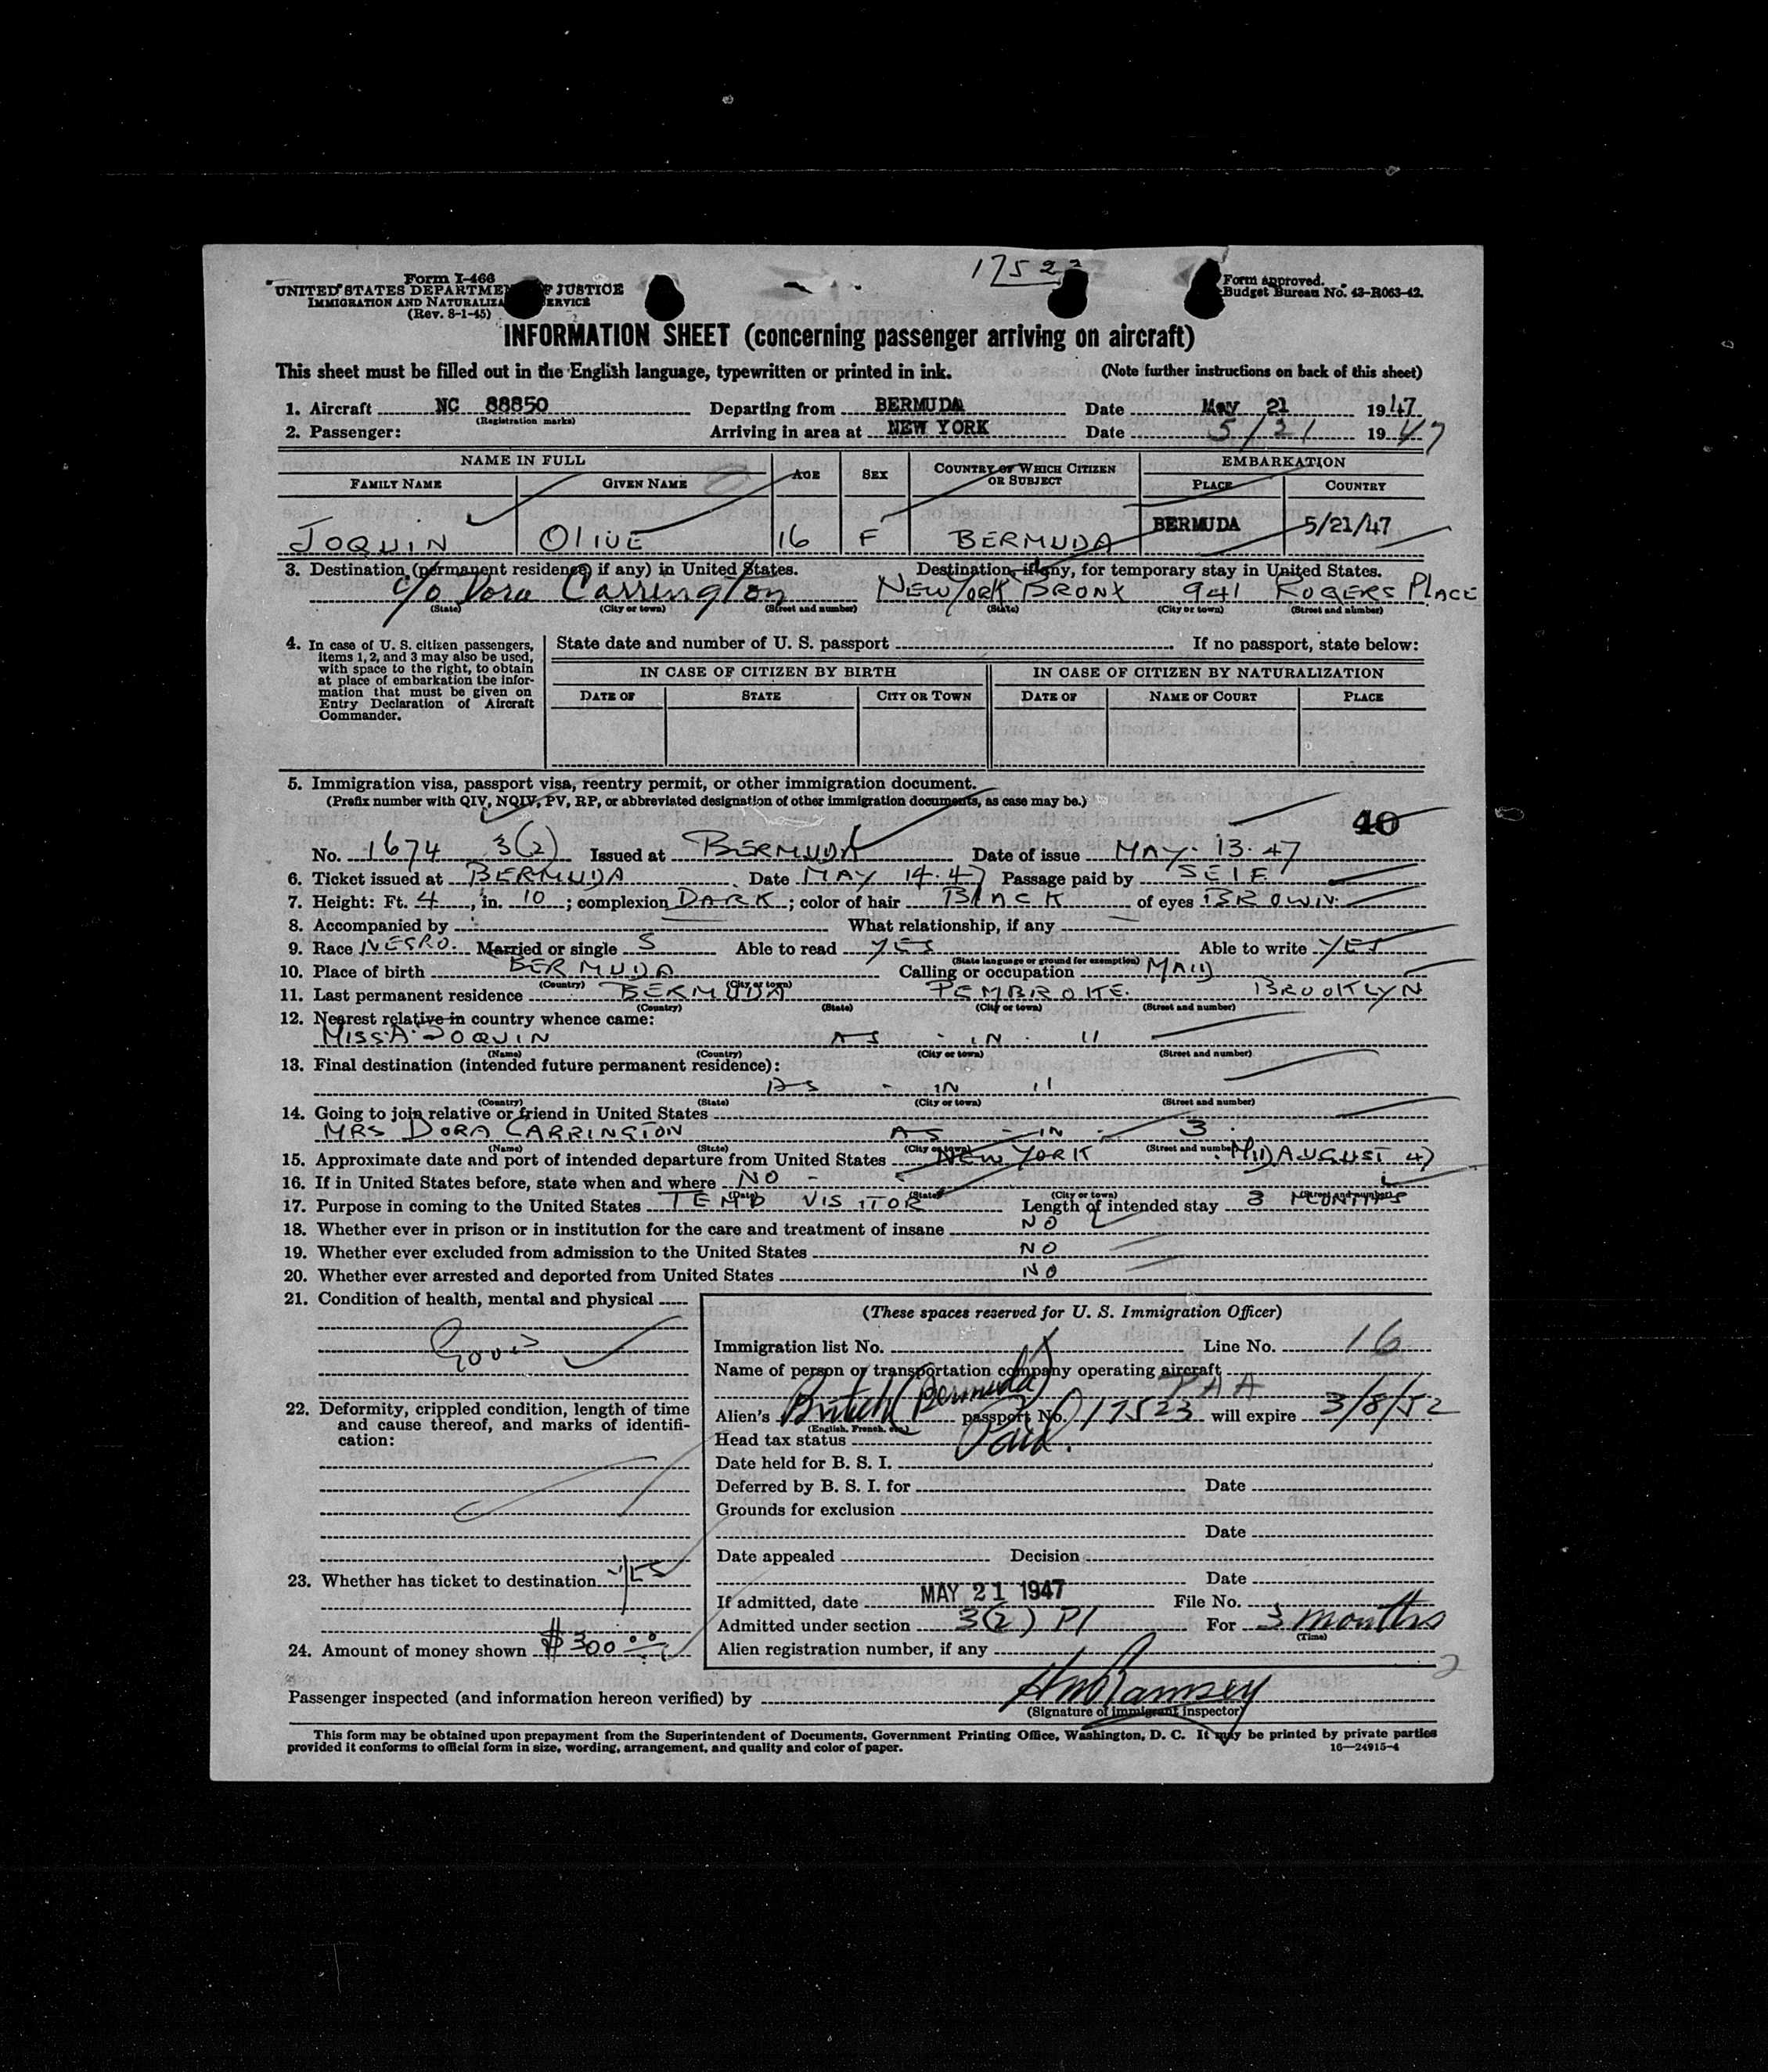 17522
Form I-466
UNITED STATES DEPARTMENT OF JUSTICE
IMMIGRATION AND NATURALIZATION SERVICE
(Rev. 8-1-45)
Form approved.
Budget Bureau No. 43-R063-42.
INFORMATION SHEET (concerning passenger arriving on aircraft)
This sheet must be filled out in the English language, typewritten or printed in ink. (Note further instructions on back of this sheet)
1. Aircraft NC 88850 Departing from BERMUDA Date May 21 1947
(Registration marks)
2. Passenger: Arriving in area at NEW YORK Date 5/21 1947
NAME IN FULL AGE SEX COUNTRY OF WHICH CITIZEN OR SUBJECT EMBARKATION
FAMILY NAME GIVEN NAME PLACE COUNTRY
JOQUIN OLIVE 16 F BERMUDA BERMUDA 5/21/47
3. Destination (permanent residence, if any) in United States. Destination, if any, for temporary stay in United States.
c/o Dora Carrington NEW YORK BRONX 941 ROGERS PLACE
(State) (City or town) (Street and number) (State) (City or town) (Street and number)
4. In case of U. S. citizen passengers, items 1, 2, and 3 may also be used, with space to the right, to obtain at place of embarkation the information that must be given on Entry Declaration of Aircraft Commander.
State date and number of U. S. passport If no passport, state below:
IN CASE OF CITIZEN BY BIRTH IN CASE OF CITIZEN BY NATURALIZATION
DATE OF STATE CITY OR TOWN DATE OF NAME OF COURT PLACE
5. Immigration visa, passport visa, reentry permit, or other immigration document.
(Prefix number with QIV, NQIV, PV, RP, or abbreviated designation of other immigration documents, as case may be.)
40
No. 1674 3(2) Issued at BERMUDA Date of issue MAY. 13. 47
6. Ticket issued at BERMUDA Date MAY 14. 47 Passage paid by SELF
7. Height: Ft. 4, in. 10; complexion DARK; color of hair BLACK of eyes BROWN.
8. Accompanied by What relationship, if any
9. Race NEGRO. Married or single S Able to read YES Able to write YES
(State language or ground for exemption)
10. Place of birth BERMUDA Calling or occupation MAID
(Country) (City or town)
11. Last permanent residence BERMUDA PEMBROKE. BROOKLYN
(Country) (State) (City or town) (Street and number)
12. Nearest relative in country whence came:
MISS. A. JOQUIN AS - IN. 11
(Name) (Country) (City or town) (Street and number)
13. Final destination (intended future permanent residence):
AS - IN 11
(Country) (State) (City or town) (Street and number)
14. Going to join relative or friend in United States
MRS DORA CARRINGTON AS - IN - 3.
(Name) (State) (City or town) (Street and number)
15. Approximate date and port of intended departure from United States NEW YORK MID AUGUST 47
16. If in United States before, state when and where NO -
(Date) (State) (City or town) (Street and number)
17. Purpose in coming to the United States TEMP VISITOR Length of intended stay 3 MONTHS
18. Whether ever in prison or in institution for the care and treatment of insane NO
19. Whether ever excluded from admission to the United States NO
20. Whether ever arrested and deported from United States NO
21. Condition of health, mental and physical
Good
22. Deformity, crippled condition, length of time and cause thereof, and marks of identification:
23. Whether has ticket to destination YES
24. Amount of money shown $300.00
(These spaces reserved for U. S. Immigration Officer)
Immigration list No. Line No. 16
Name of person or transportation company operating aircraft
PAA
Alien's British (Bermuda) passport No. 17523 will expire 3/8/52
(English, French, etc.)
Head tax status Paid.
Date held for B. S. I.
Deferred by B. S. I. for Date
Grounds for exclusion
Date
Date appealed Decision
Date
If admitted, date MAY 21 1947 File No.
Admitted under section 3(2) P1 For 3 months
(Time)
Alien registration number, if any
Passenger inspected (and information hereon verified) by HM Ramsey
(Signature of immigrant inspector)
This form may be obtained upon prepayment from the Superintendent of Documents, Government Printing Office, Washington, D. C. It may be printed by private parties
provided it conforms to official form in size, wording, arrangement, and quality and color of paper. 16—24915-4